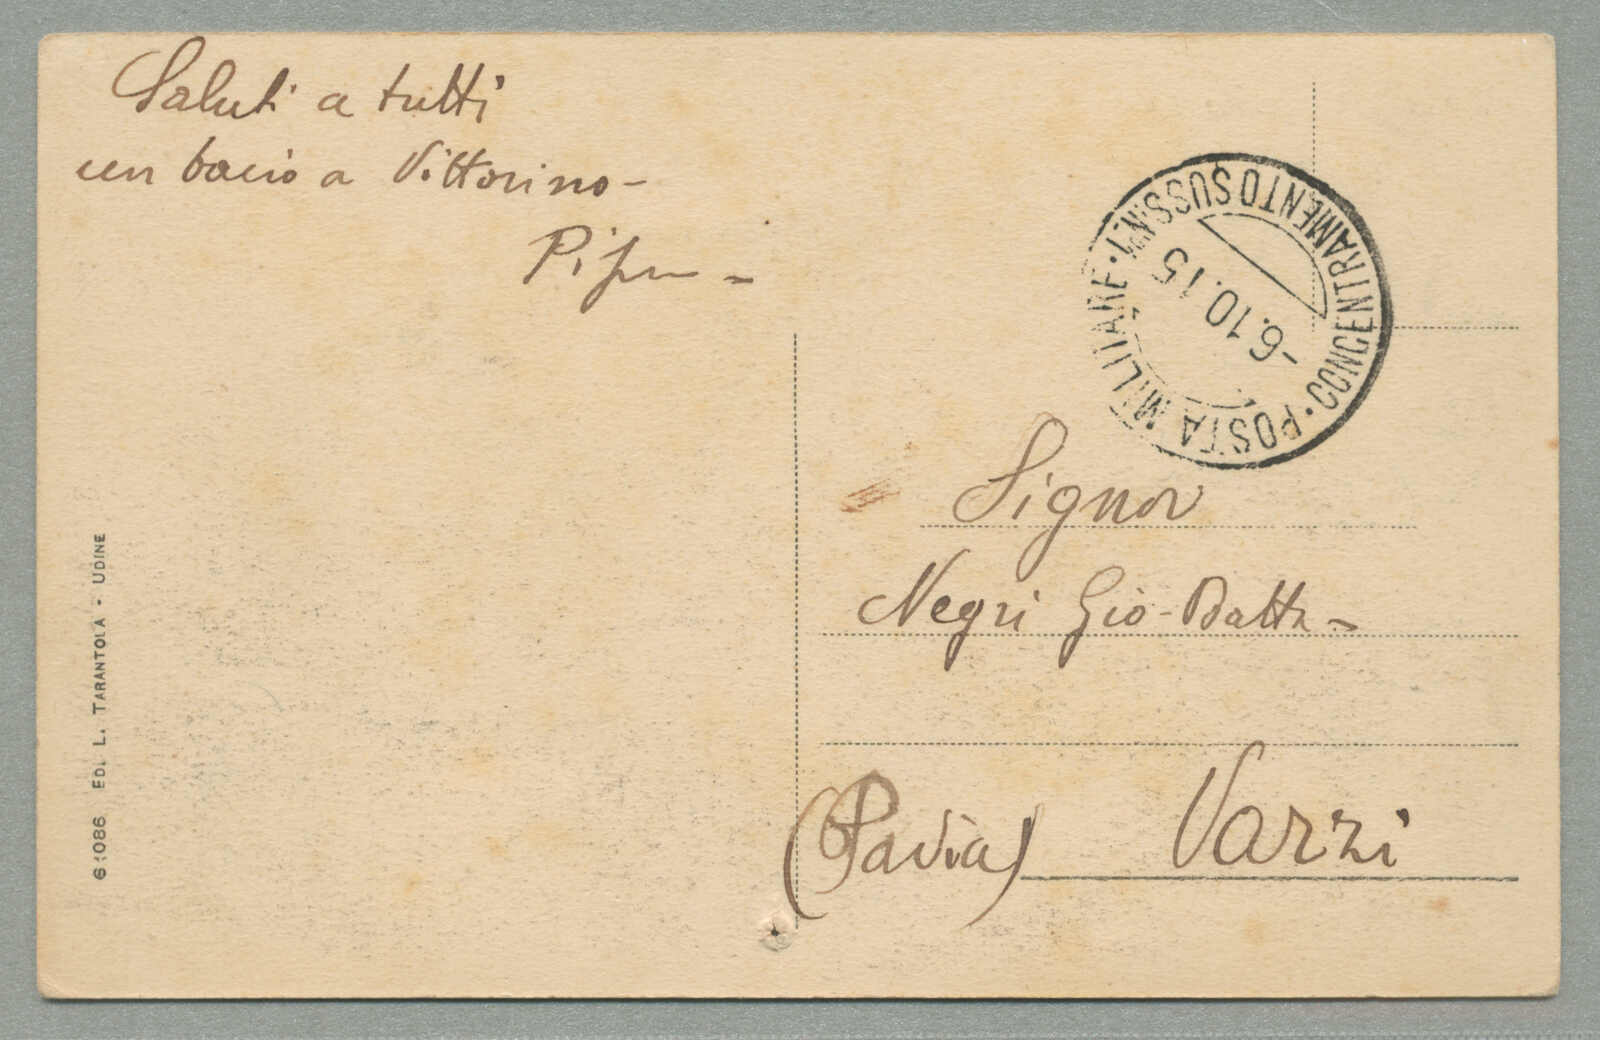 Saluti a tutti
un bacio a Vittorino -
POSTA MILITARE
CONCENTRAMENTO
-6.10.15
Signor
Negri Gio-Batta -
(Pavia) Varzi
61086 ED. L. TARANTOLA - UDINE